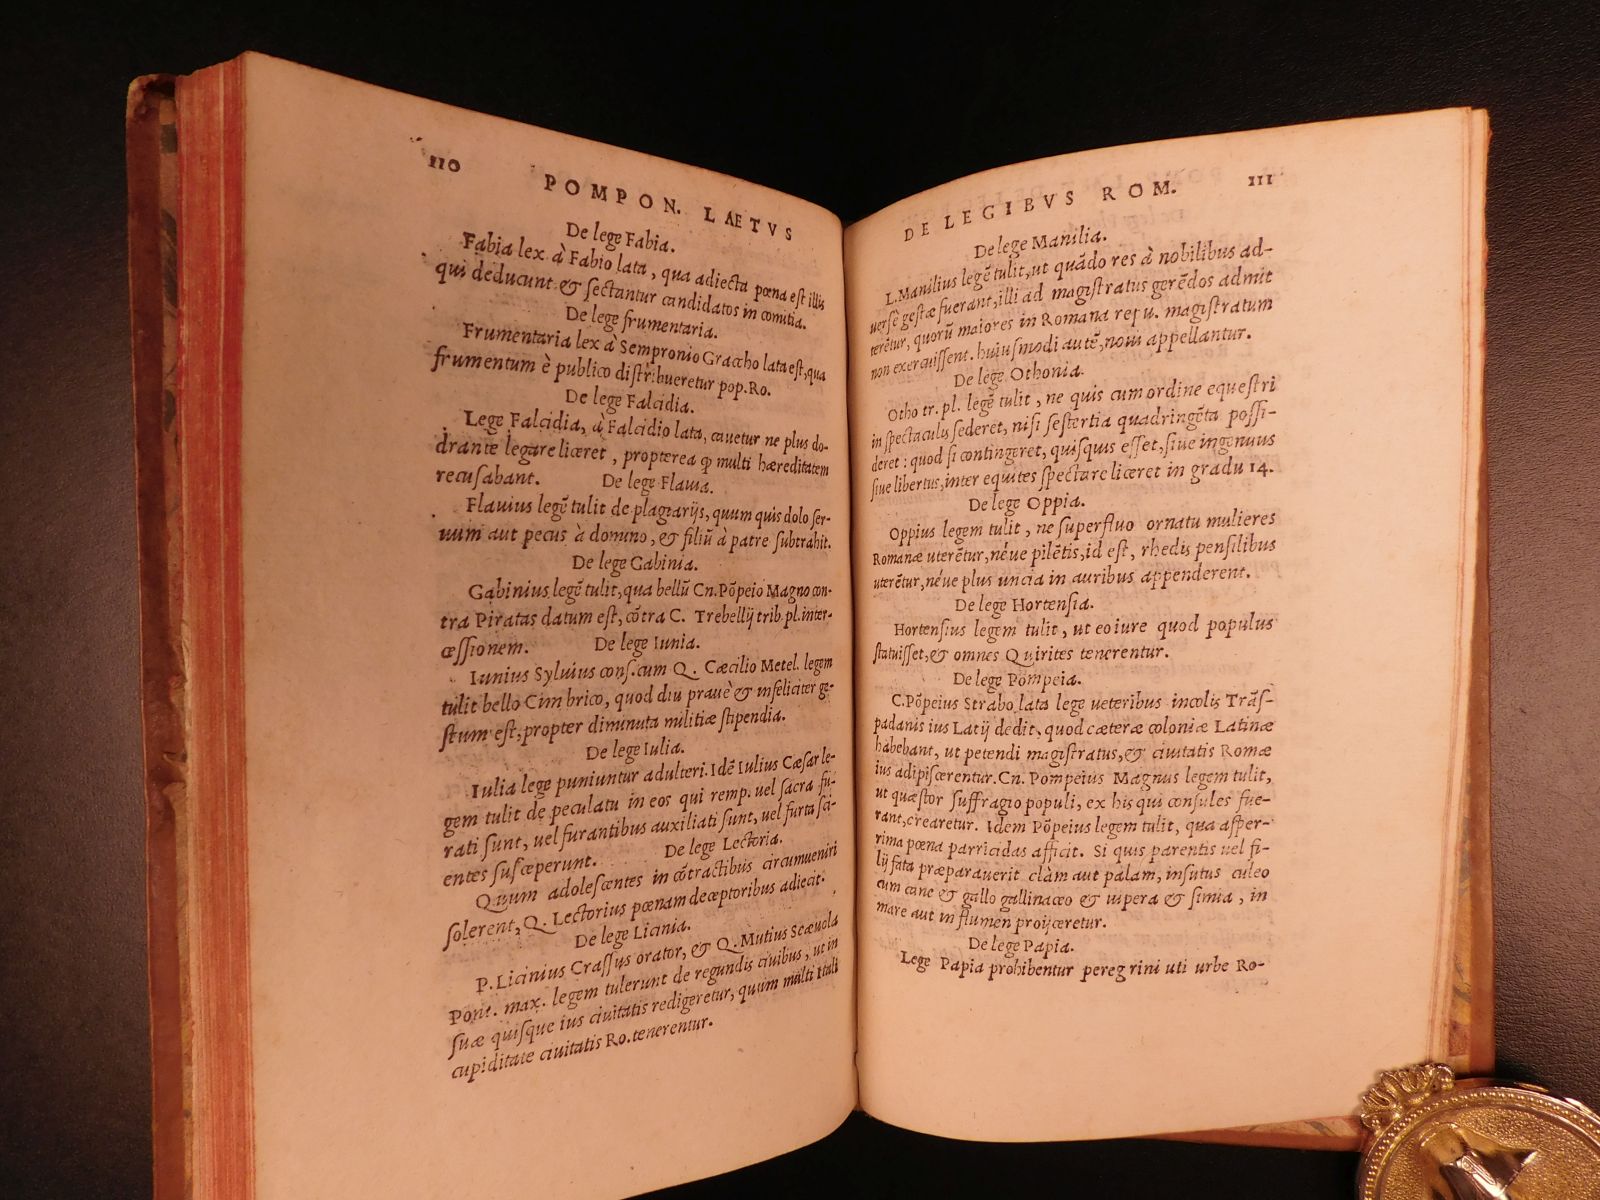 110 POMPON. LAETVS
De lege Fabia.
Fabia lex à Fabio lata, qua adiecta pœna est illis
qui deducunt & sectantur candidatos in comitia.
De lege frumentaria.
Frumentaria lex à Sempronio Graccho lata est, qua
frumentum è publico distribueretur pop. Ro.
De lege Falcidia.
Lege Falcidia, à Falcidio lata, cauetur ne plus do-
drante legare liceret, propterea ꝙ multi hæreditatem
recusabant. De lege Flauia.
Flauius legē tulit de plagiarijs, quum quis dolo ser-
uum aut pecus à domino, & filiū à patre subtrahit.
De lege Gabinia.
Gabinius legē tulit, qua bellū Cn. Pōpeio Magno con-
tra Piratas datum est, cōtra C. Trebellij trib. pl. inter-
cessionem. De lege Iunia.
Iunius Syluius cons. cum Q. Cæcilio Metel. legem
tulit bello Cimbrico, quod diu prauè & infeliciter ge-
stum est, propter diminuta militiæ stipendia.
De lege Iulia.
Iulia lege puniuntur adulteri. Idē Iulius Cæsar le-
gem tulit de peculatu in eos qui remp. uel sacra fu-
rati sunt, uel furantibus auxiliati sunt, uel furta sci-
entes susceperunt. De lege Lectoria.
Quum adolescentes in cōtractibus circumueniri
solerent, Q. Lectorius pœnam deceptoribus adiecit.
De lege Licinia.
P. Licinius Crassus orator, & Q. Mutius Scæuola
Pont. max. legem tulerunt de regundis ciuibus, ut in
suæ quisque ius ciuitatis redigeretur, quum multi Itali
cupiditate ciuitatis Ro. tenerentur.
DE LEGIBVS ROM. 111
De lege Manilia.
L. Manilius legē tulit, ut quādo res à nobilibus ad-
uersè gestæ fuerant, illi ad magistratus gerēdos admit
terētur, quorū maiores in Romana repu. magistratum
non exercuissent. huiusmodi autē, noui appellantur.
De lege Othonia.
Otho tr. pl. legē tulit, ne quis cum ordine equestri
in spectaculis sederet, nisi sestertia quadringēta possi-
deret: quod si contingeret, quisquis esset, siue ingenuus
siue libertus, inter equites spectare liceret in gradu 14.
De lege Oppia.
Oppius legem tulit, ne superfluo ornatu mulieres
Romanæ uterētur, néue pilētis, id est, rhedis pensilibus
uterētur, néue plus uncia in auribus appenderent.
De lege Hortensia.
Hortensius legem tulit, ut eo iure quod populus
statuisset, & omnes Quirites tenerentur.
De lege Pōmpeia.
C. Pōpeius Strabo lata lege ueteribus incolis Trās-
padanis ius Latij dedit, quod cæteræ coloniæ Latinæ
habebant, ut petendi magistratus, & ciuitatis Romæ
ius adipiscerentur. Cn. Pompeius Magnus legem tulit,
ut quæstor suffragio populi, ex his qui consules fue-
rant, crearetur. Idem Pōpeius legem tulit, qua asper-
rima pœna parricidas afficit. Si quis parentis uel fi-
lij fata præparauerit clàm aut palam, insutus culeo
cum cane & gallo gallinaceo & uipera & simia, in
mare aut in flumen proijceretur.
De lege Papia.
Lege Papia prohibentur peregrini uti urbe Ro-